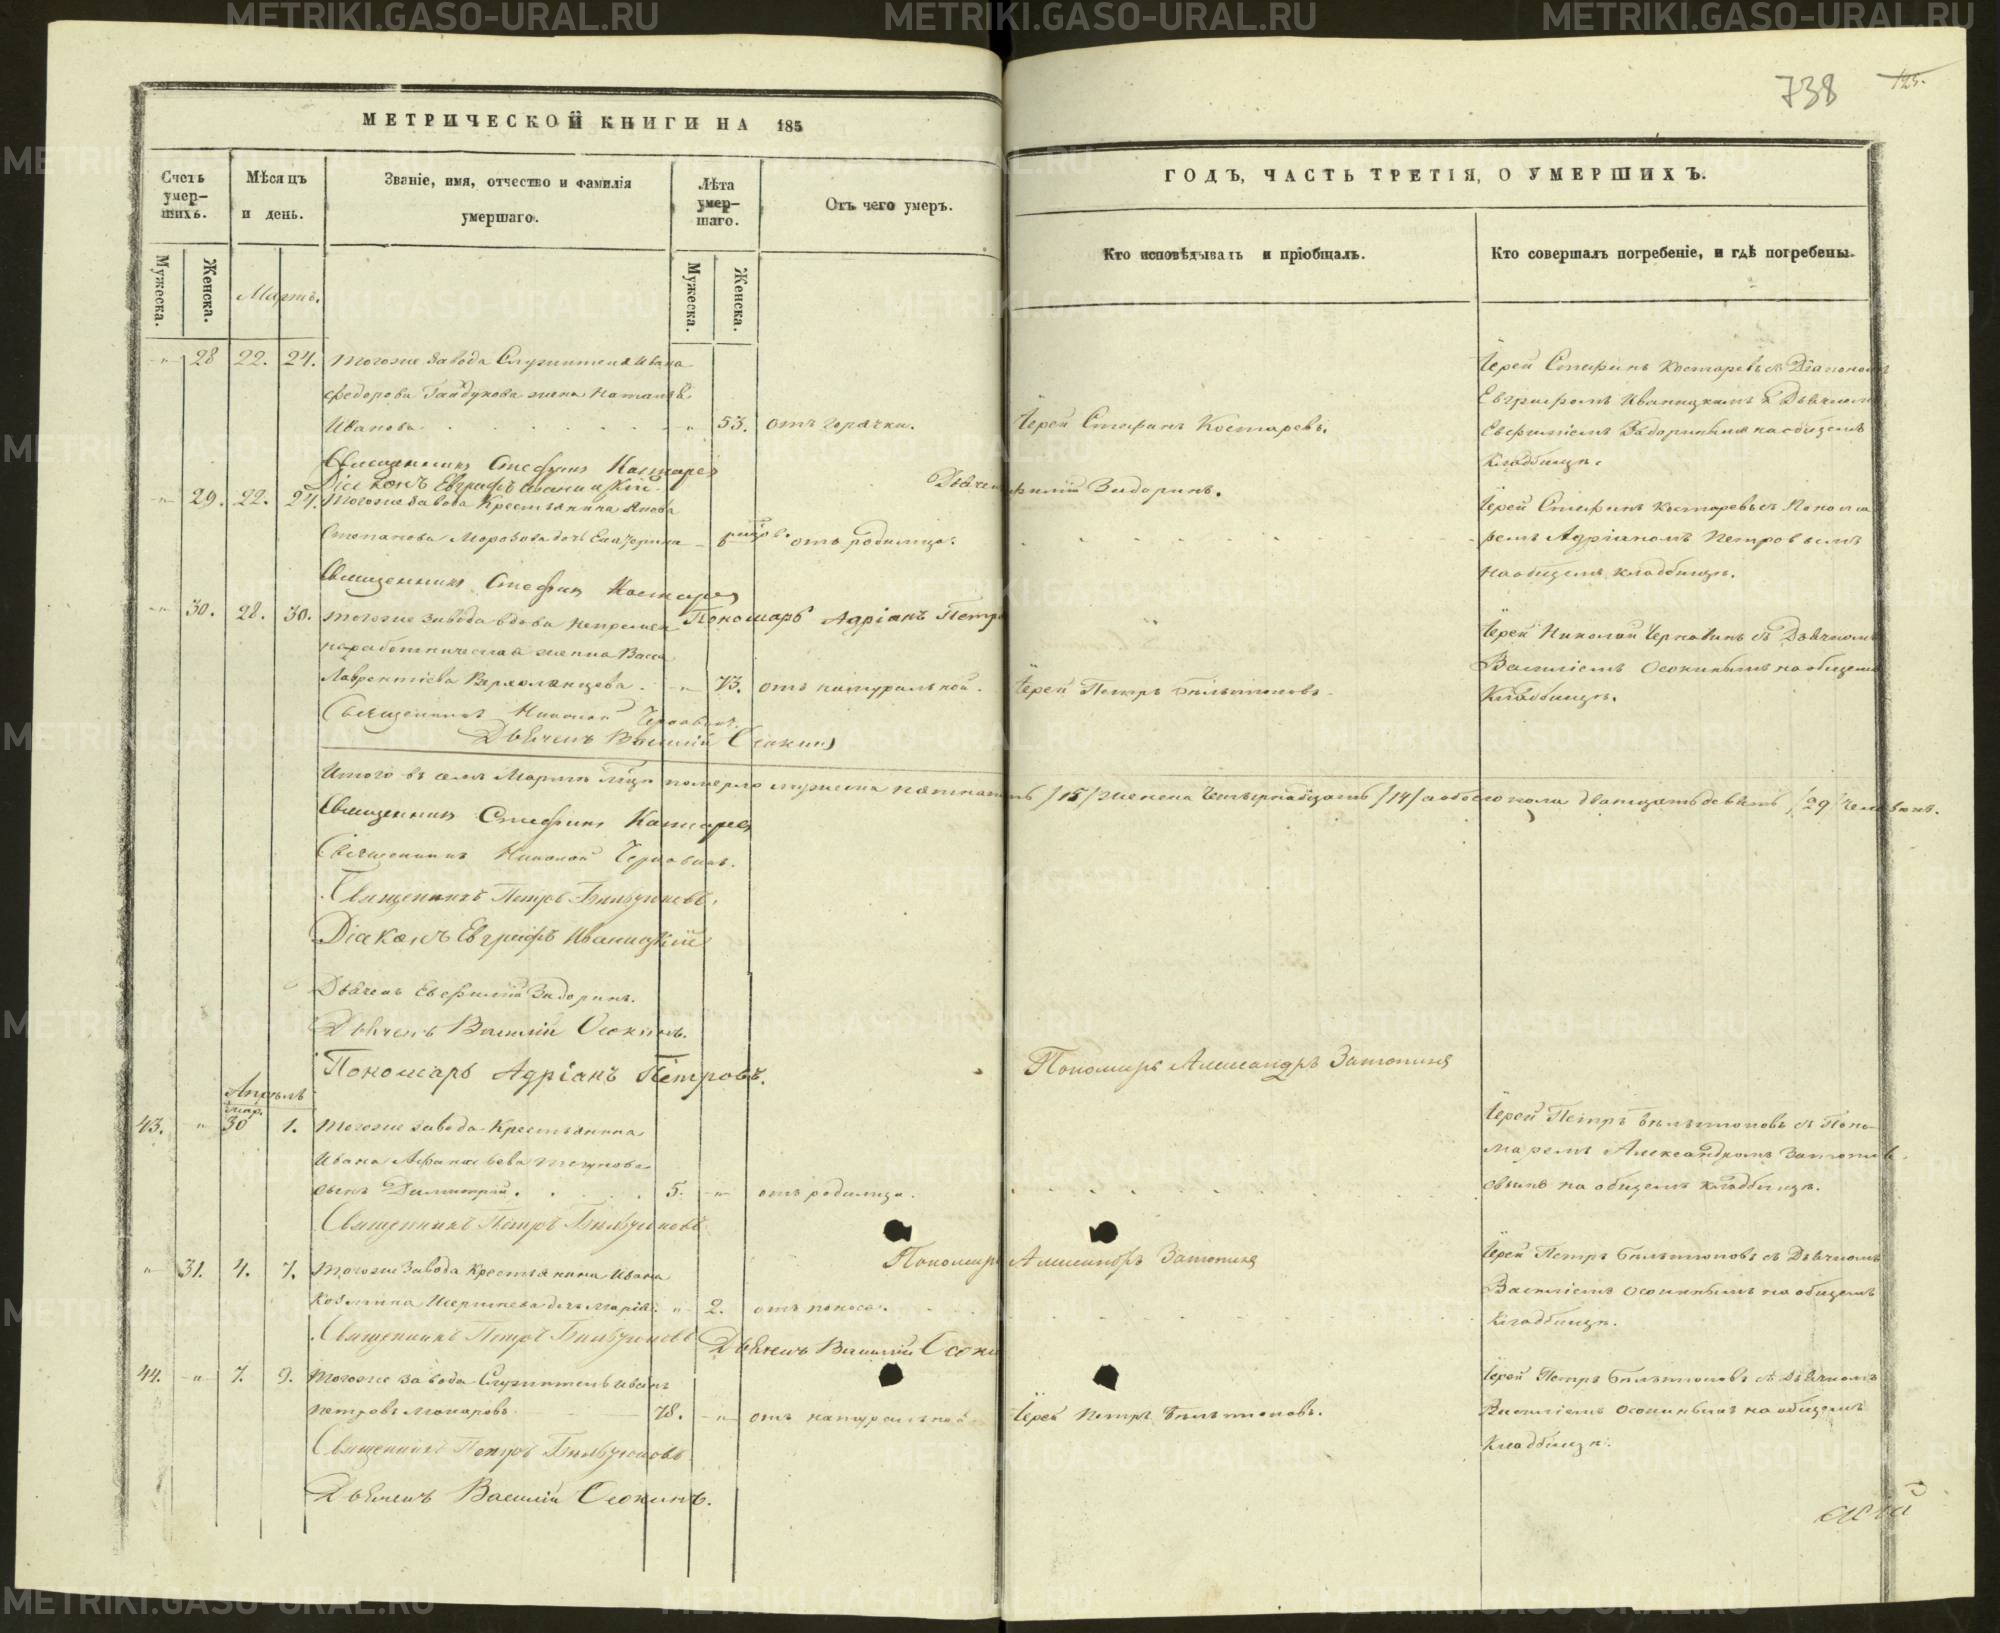 738
125.
МЕТРИЧЕСКОЙ КНИГИ НА 185
ГОДЪ, ЧАСТЬ ТРЕТІЯ, О УМЕРШИХЪ.
Счетъ умер-
шихъ.
Мѣсяцъ
и день.
Званіе, имя, отчество и фамилія
умершаго.
Лѣта
умер-
шаго.
Отъ чего умеръ.
Кто исповѣдывалъ и пріобщалъ.
Кто совершалъ погребеніе, и гдѣ погребены.
Мужеска.
Женска.
Мужеска.
Женска.
Мартъ.
28 22. 24. Тогоже завода Служителя Ивана
Федорова Гайдукова жена Наталья
Иванова 53. отъ горячки. Іерей Стефанъ Костаревъ.
Іерей Стефанъ Костаревъ съ Діакономъ
Евграфомъ Иваницкимъ и Дьячкомъ
Евфиміемъ Задоринымъ на общемъ
кладбищѣ.
Священникъ Стефанъ Костаревъ
Діаконъ Евграфъ Иваницкій
Дьячекъ Евфимій Задоринъ.
29. 22. 24. Тогоже завода Крестьянина
Степанова Морозова дочь Екатерина отъ родимца.
Іерей Стефанъ Костаревъ съ Понома
ремъ Адріаномъ Петровымъ
на общемъ кладбищѣ.
Священникъ Стефанъ Костаревъ
Пономарь Адріанъ Петровъ
30. 28. 30. Тогоже завода вдова непремен
наработническая женка Васса
Лаврентіева 73. отъ натуральной. Іерей Петръ
Іерей Николай Черновинъ съ Дьячкомъ
Василіемъ Осокинымъ на общемъ
кладбищѣ.
Священникъ Николай
Дьячекъ Василій Осокинъ
Итого въ семъ Мартѣ м-цѣ померло мужеска пятнадцать /15/ женска четырнадцать /14/ а обоего пола двадцать девять /29/ человѣкъ.
Священникъ Стефанъ Костаревъ
Священникъ Николай
Священникъ Петръ
Діаконъ Евграфъ Иваницкій
Дьячекъ Евфимій Задоринъ.
Дьячекъ Василій Осокинъ.
Пономарь Адріанъ Петровъ.
Пономарь Александръ
Апрѣль
Мар.
43. 30 1. Тогоже завода Крестьянина
Ивана Афанасьева
сынъ Димитрій. 5. отъ родимца.
Іерей Петръ съ Поно
маремъ Александромъ
на общемъ кладбищѣ.
Священникъ Петръ
Пономарь Александръ
31. 4. 7. Тогоже завода Крестьянина Ивана
Козмина дочь Марія 2. отъ поноса.
Іерей Петръ съ Дьячкомъ
Василіемъ Осокинымъ на общемъ
кладбищѣ.
Священникъ Петръ
Дьячекъ Василій Осокинъ
44. 7. 9. Тогоже завода Служитель Иванъ
Петровъ 78. отъ натуральной Іерей Петръ
Іерей Петръ съ Дьячкомъ
Василіемъ Осокинымъ на общемъ
кладбищѣ.
Священникъ Петръ
Дьячекъ Василій Осокинъ.
METRIKI.GASO-URAL.RU